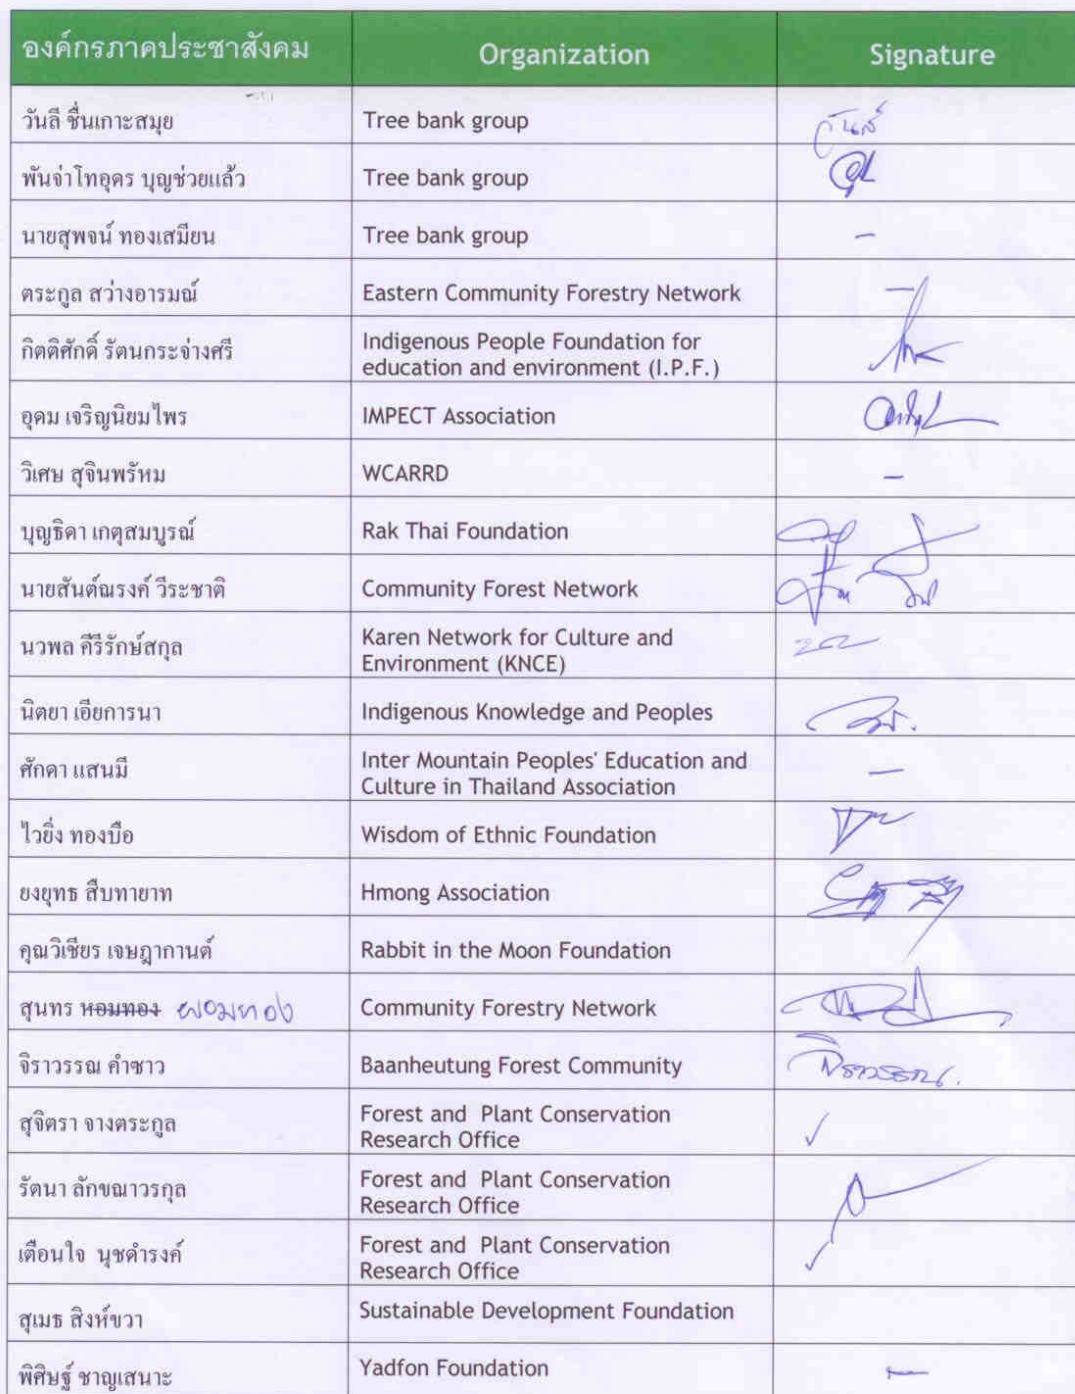 องค์กรภาคประชาสังคม Organization Signature
วันลี ชื่นเกาะสมุย Tree bank group วันลี
พันจ่าโทอุดร บุญช่วยแล้ว Tree bank group
นายสุพจน์ ทองเสมียน Tree bank group –
ตระกูล สว่างอารมณ์ Eastern Community Forestry Network –
กิตติศักดิ์ รัตนกระจ่างศรี Indigenous People Foundation for
education and environment (I.P.F.)
อุดม เจริญนิยมไพร IMPECT Association
วิเศษ สุจินพรัหม WCARRD –
บุญธิดา เกตุสมบูรณ์ Rak Thai Foundation
นายสันต์ณรงค์ วีระชาติ Community Forest Network
นวพล คีรีรักษ์สกุล Karen Network for Culture and
Environment (KNCE)
นิตยา เอียการนา Indigenous Knowledge and Peoples
ศักดา แสนมี Inter Mountain Peoples' Education and
Culture in Thailand Association –
ไวยิ่ง ทองบือ Wisdom of Ethnic Foundation
ยงยุทธ สืบทายาท Hmong Association
คุณวิเชียร เจษฎากานต์ Rabbit in the Moon Foundation
สุนทร หอมทอง ผอมทอง Community Forestry Network
จิราวรรณ คำซาว Baanheutung Forest Community จิราวรรณ.
สุจิตรา จางตระกูล Forest and Plant Conservation
Research Office ✓
รัตนา ลักขณาวรกุล Forest and Plant Conservation
Research Office
เตือนใจ นุชดำรงค์ Forest and Plant Conservation
Research Office ✓
สุเมธ สิงห์ขวา Sustainable Development Foundation
พิศิษฐ์ ชาญเสนาะ Yadfon Foundation –